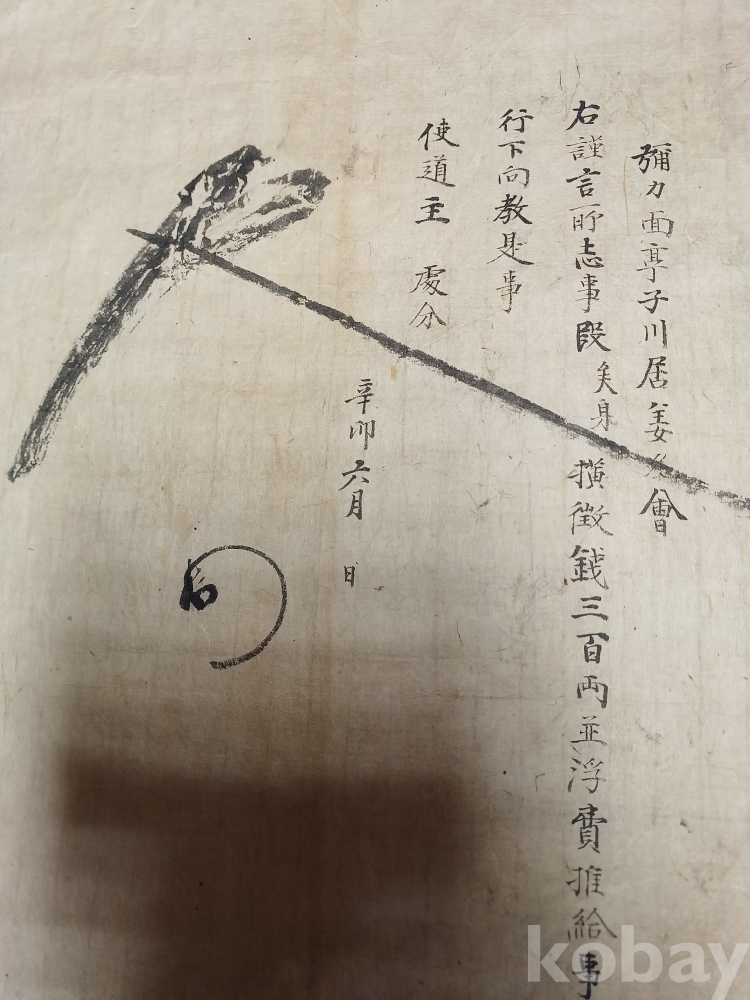 彌力面亭子川居姜 會
右謹言所志事段矣身橫徵錢三百両並浮費推給事
行下向教是事
使道主 處分
辛卯六月 日
kobay